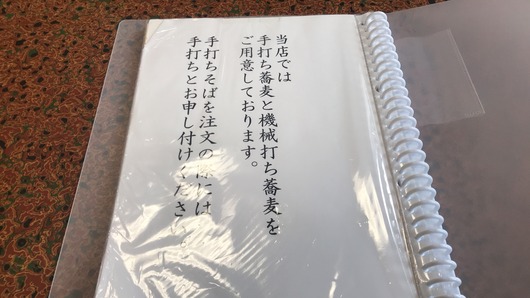 当店では
手打ち蕎麦と機械打ち蕎麦を
ご用意しております。
手打ちそばを注文の際には
手打ちとお申し付けください